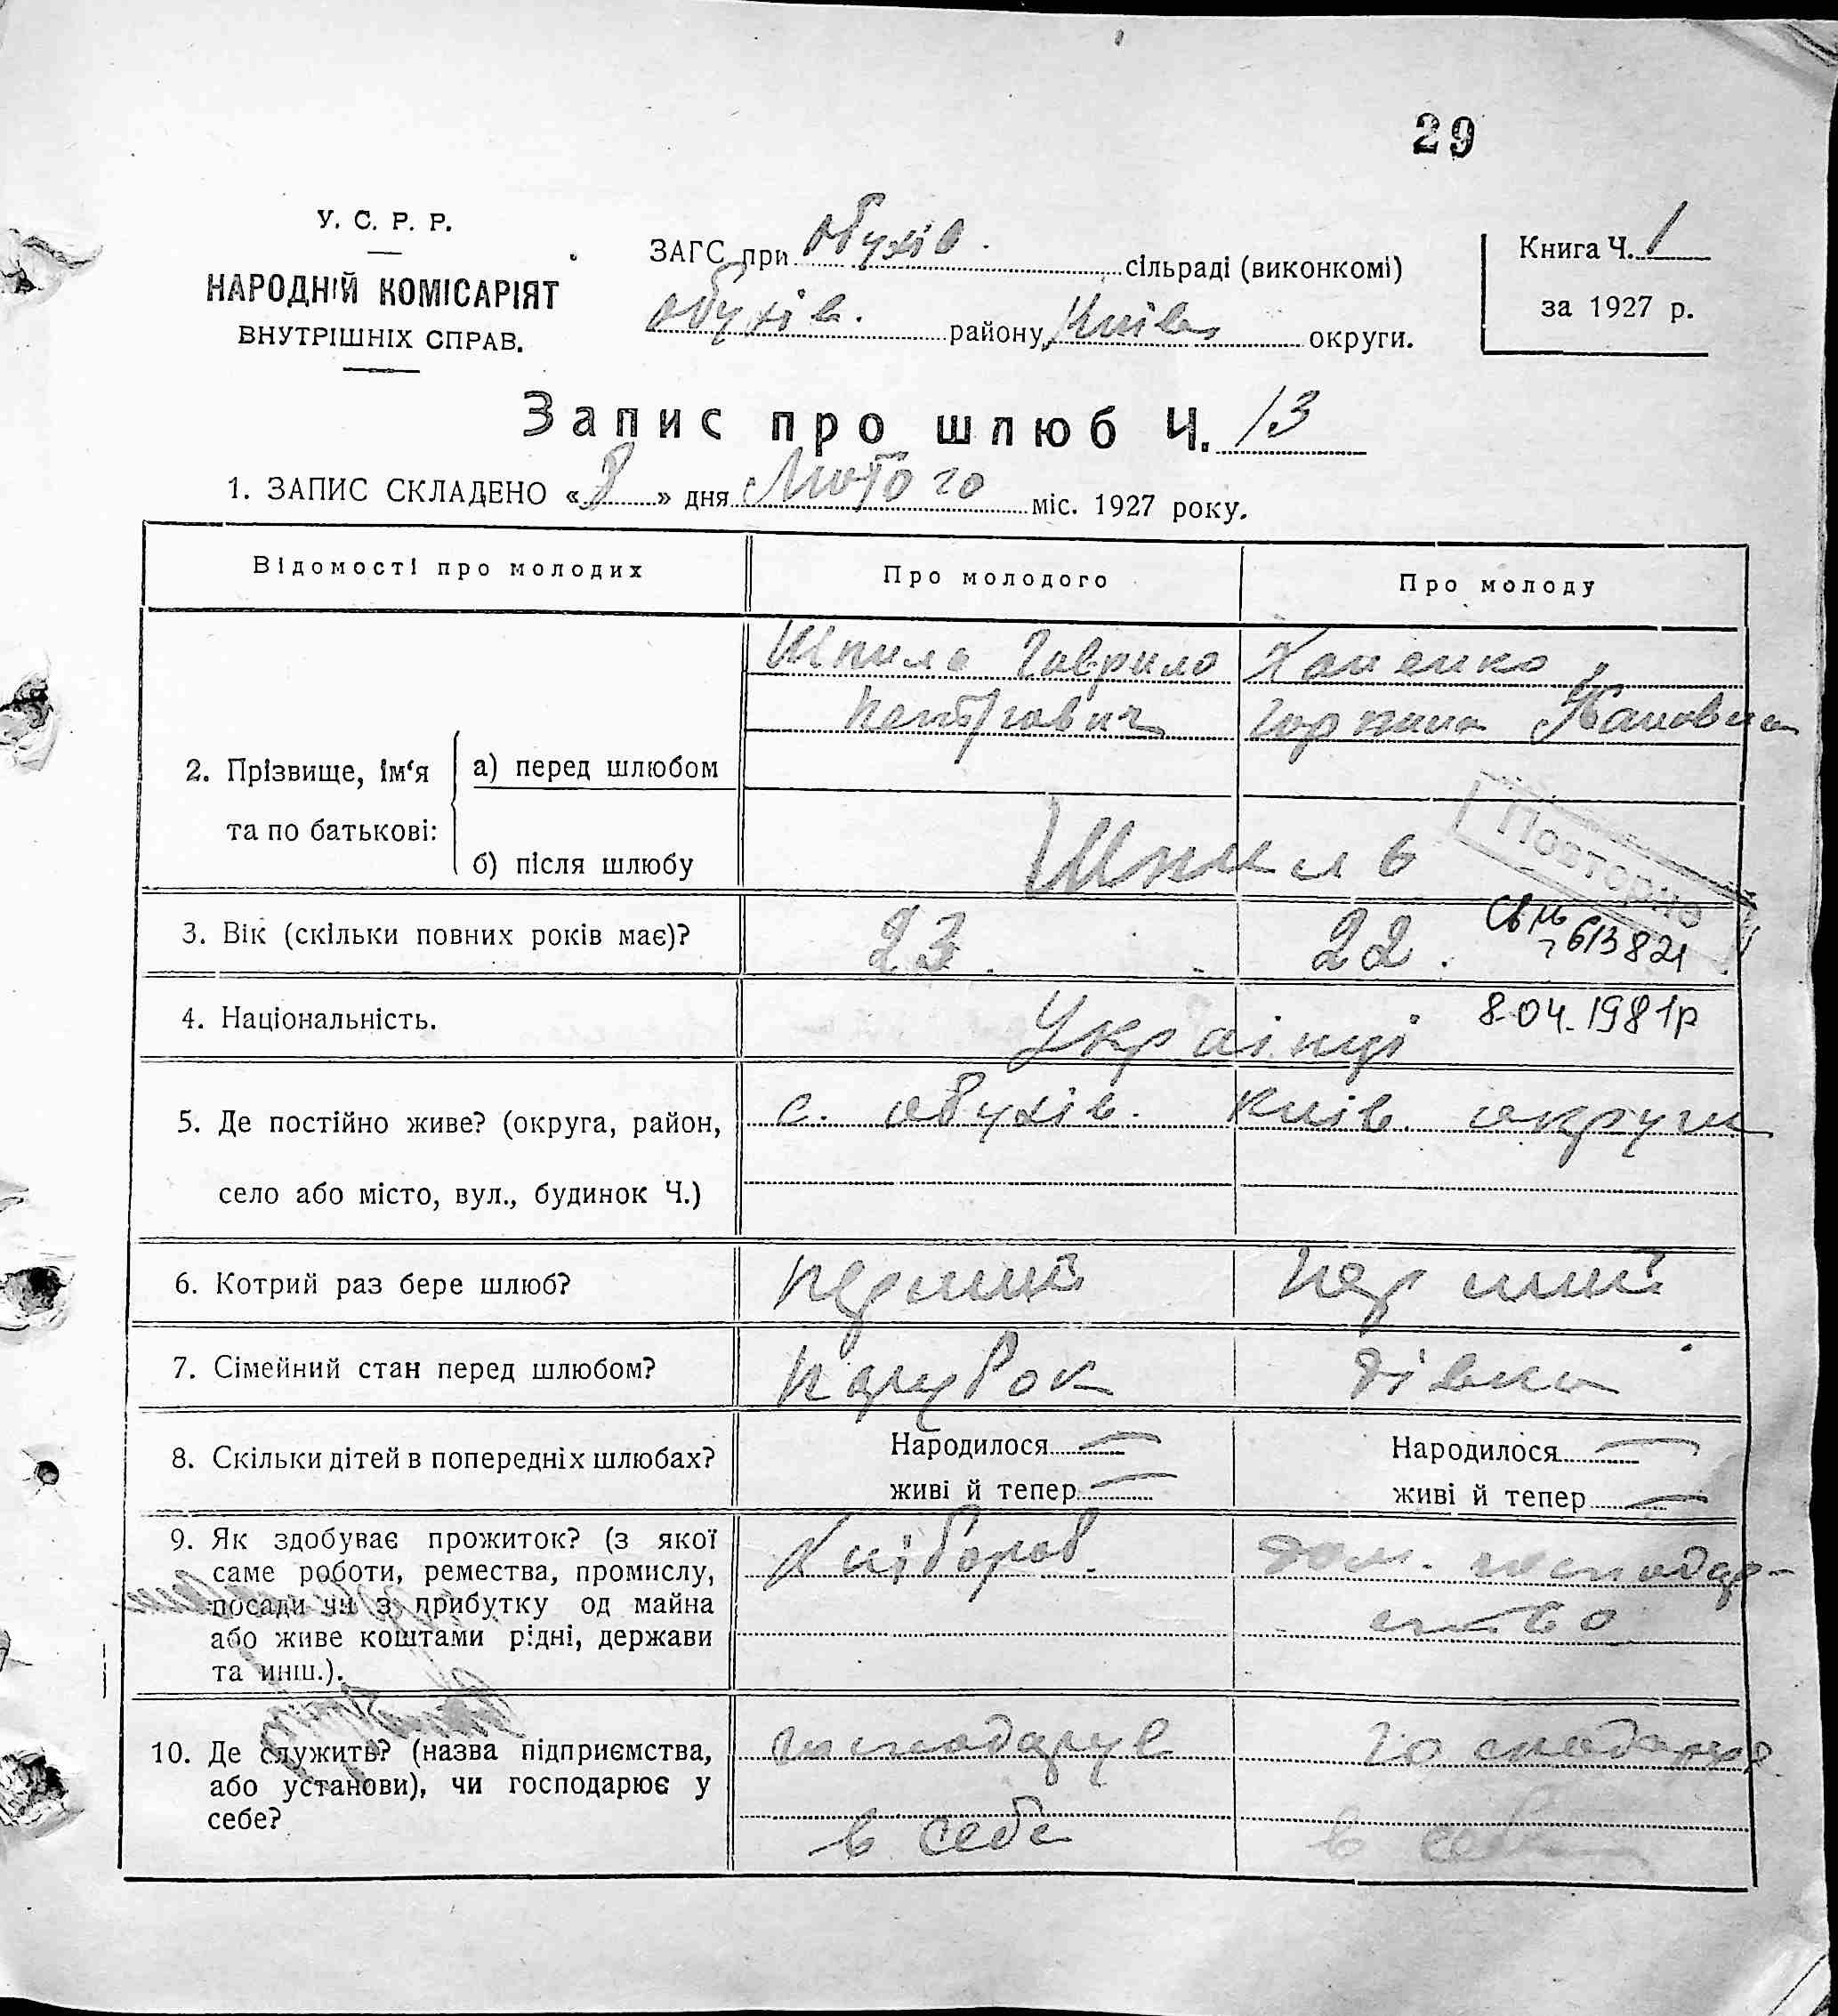 29
У. С. Р. Р.
НАРОДНІЙ КОМІСАРІЯТ
ВНУТРІШНІХ СПРАВ.
ЗАГС при Обухів. сільраді (виконкомі)
Обухів. району, Київ округи.
Книга Ч. 1
за 1927 р.
Запис про шлюб Ч. 13
1. ЗАПИС СКЛАДЕНО « 8 » дня Лютого міс. 1927 року.
Відомості про молодих
Про молодого
Про молоду
2. Прізвище, ім‘я та по батькові:
а) перед шлюбом
Шпиль Гаврило
Петрович
Ханенко
Горпина
б) після шлюбу
Шпиль
Повторно
3. Вік (скільки повних років має)?
23.
22.
613821
4. Національність.
Українці
8-04-1981р
5. Де постійно живе? (округа, район,
село або місто, вул., будинок Ч.)
с. Обухів. Київ. округи
6. Котрий раз бере шлюб?
перший
перший
7. Сімейний стан перед шлюбом?
парубок
дівка
8. Скільки дітей в попередніх шлюбах?
Народилося —
живі й тепер —
Народилося —
живі й тепер —
9. Як здобуває прожиток? (з якої
саме роботи, ремества, промислу,
посади чи з прибутку од майна
або живе коштами рідні, держави
та инш.).
Хлібороб.
дом. господар-
ство
10. Де служить? (назва підприємства,
або установи), чи господарює у
себе?
господарує
в себе
господарює
в себе